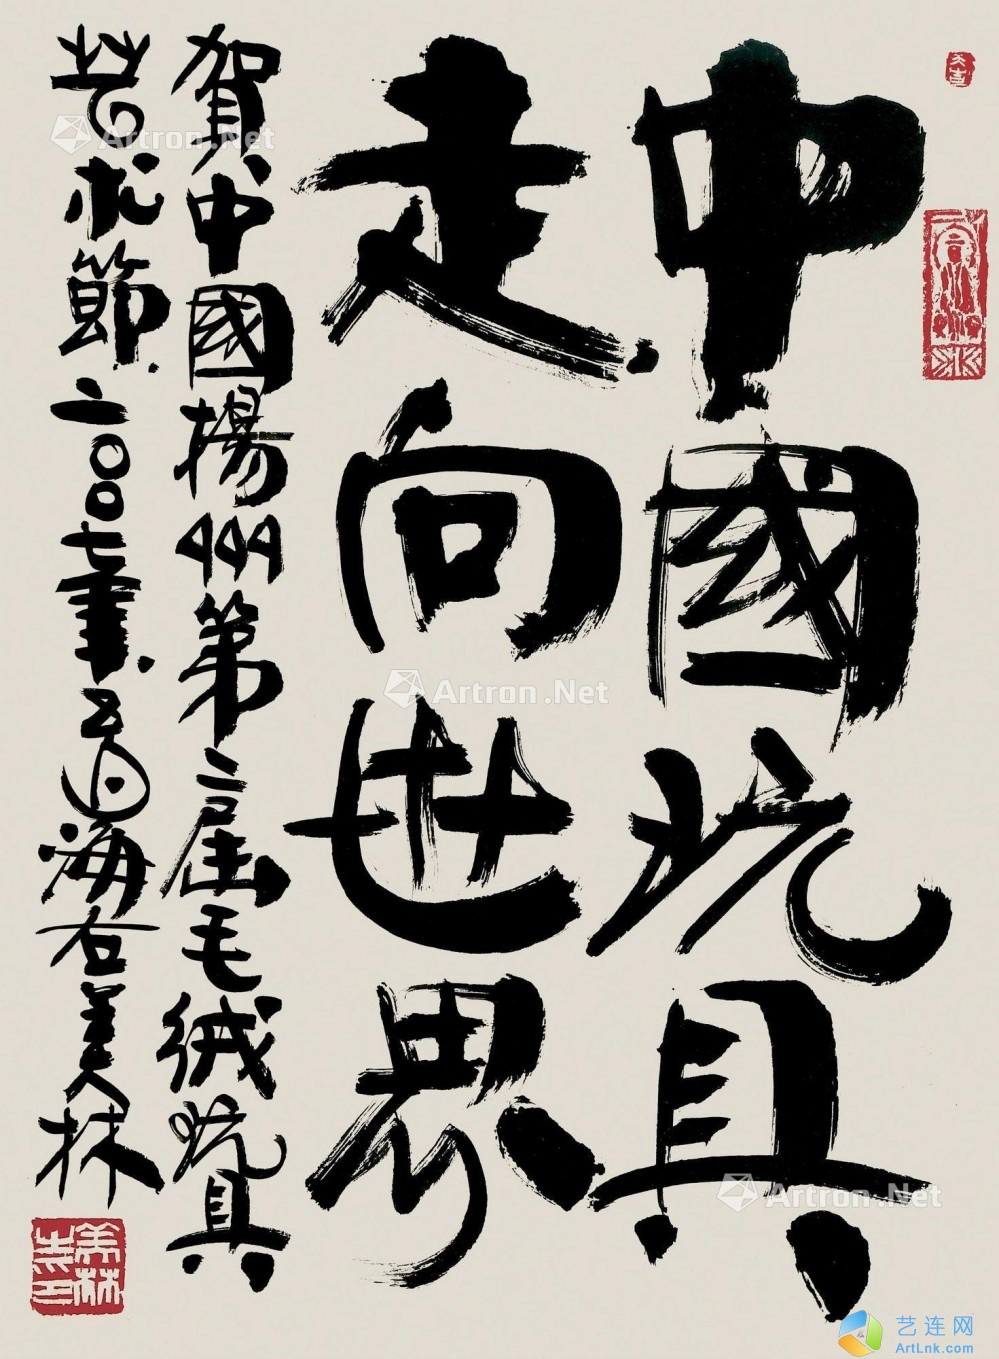 中國玩具
走向世界
賀中國揚州第二屆毛絨玩具
艺术節二〇〇七年
海右美林
Artron.Net
Artron.Net
Artron.Net
艺连网
ArtLnk.com